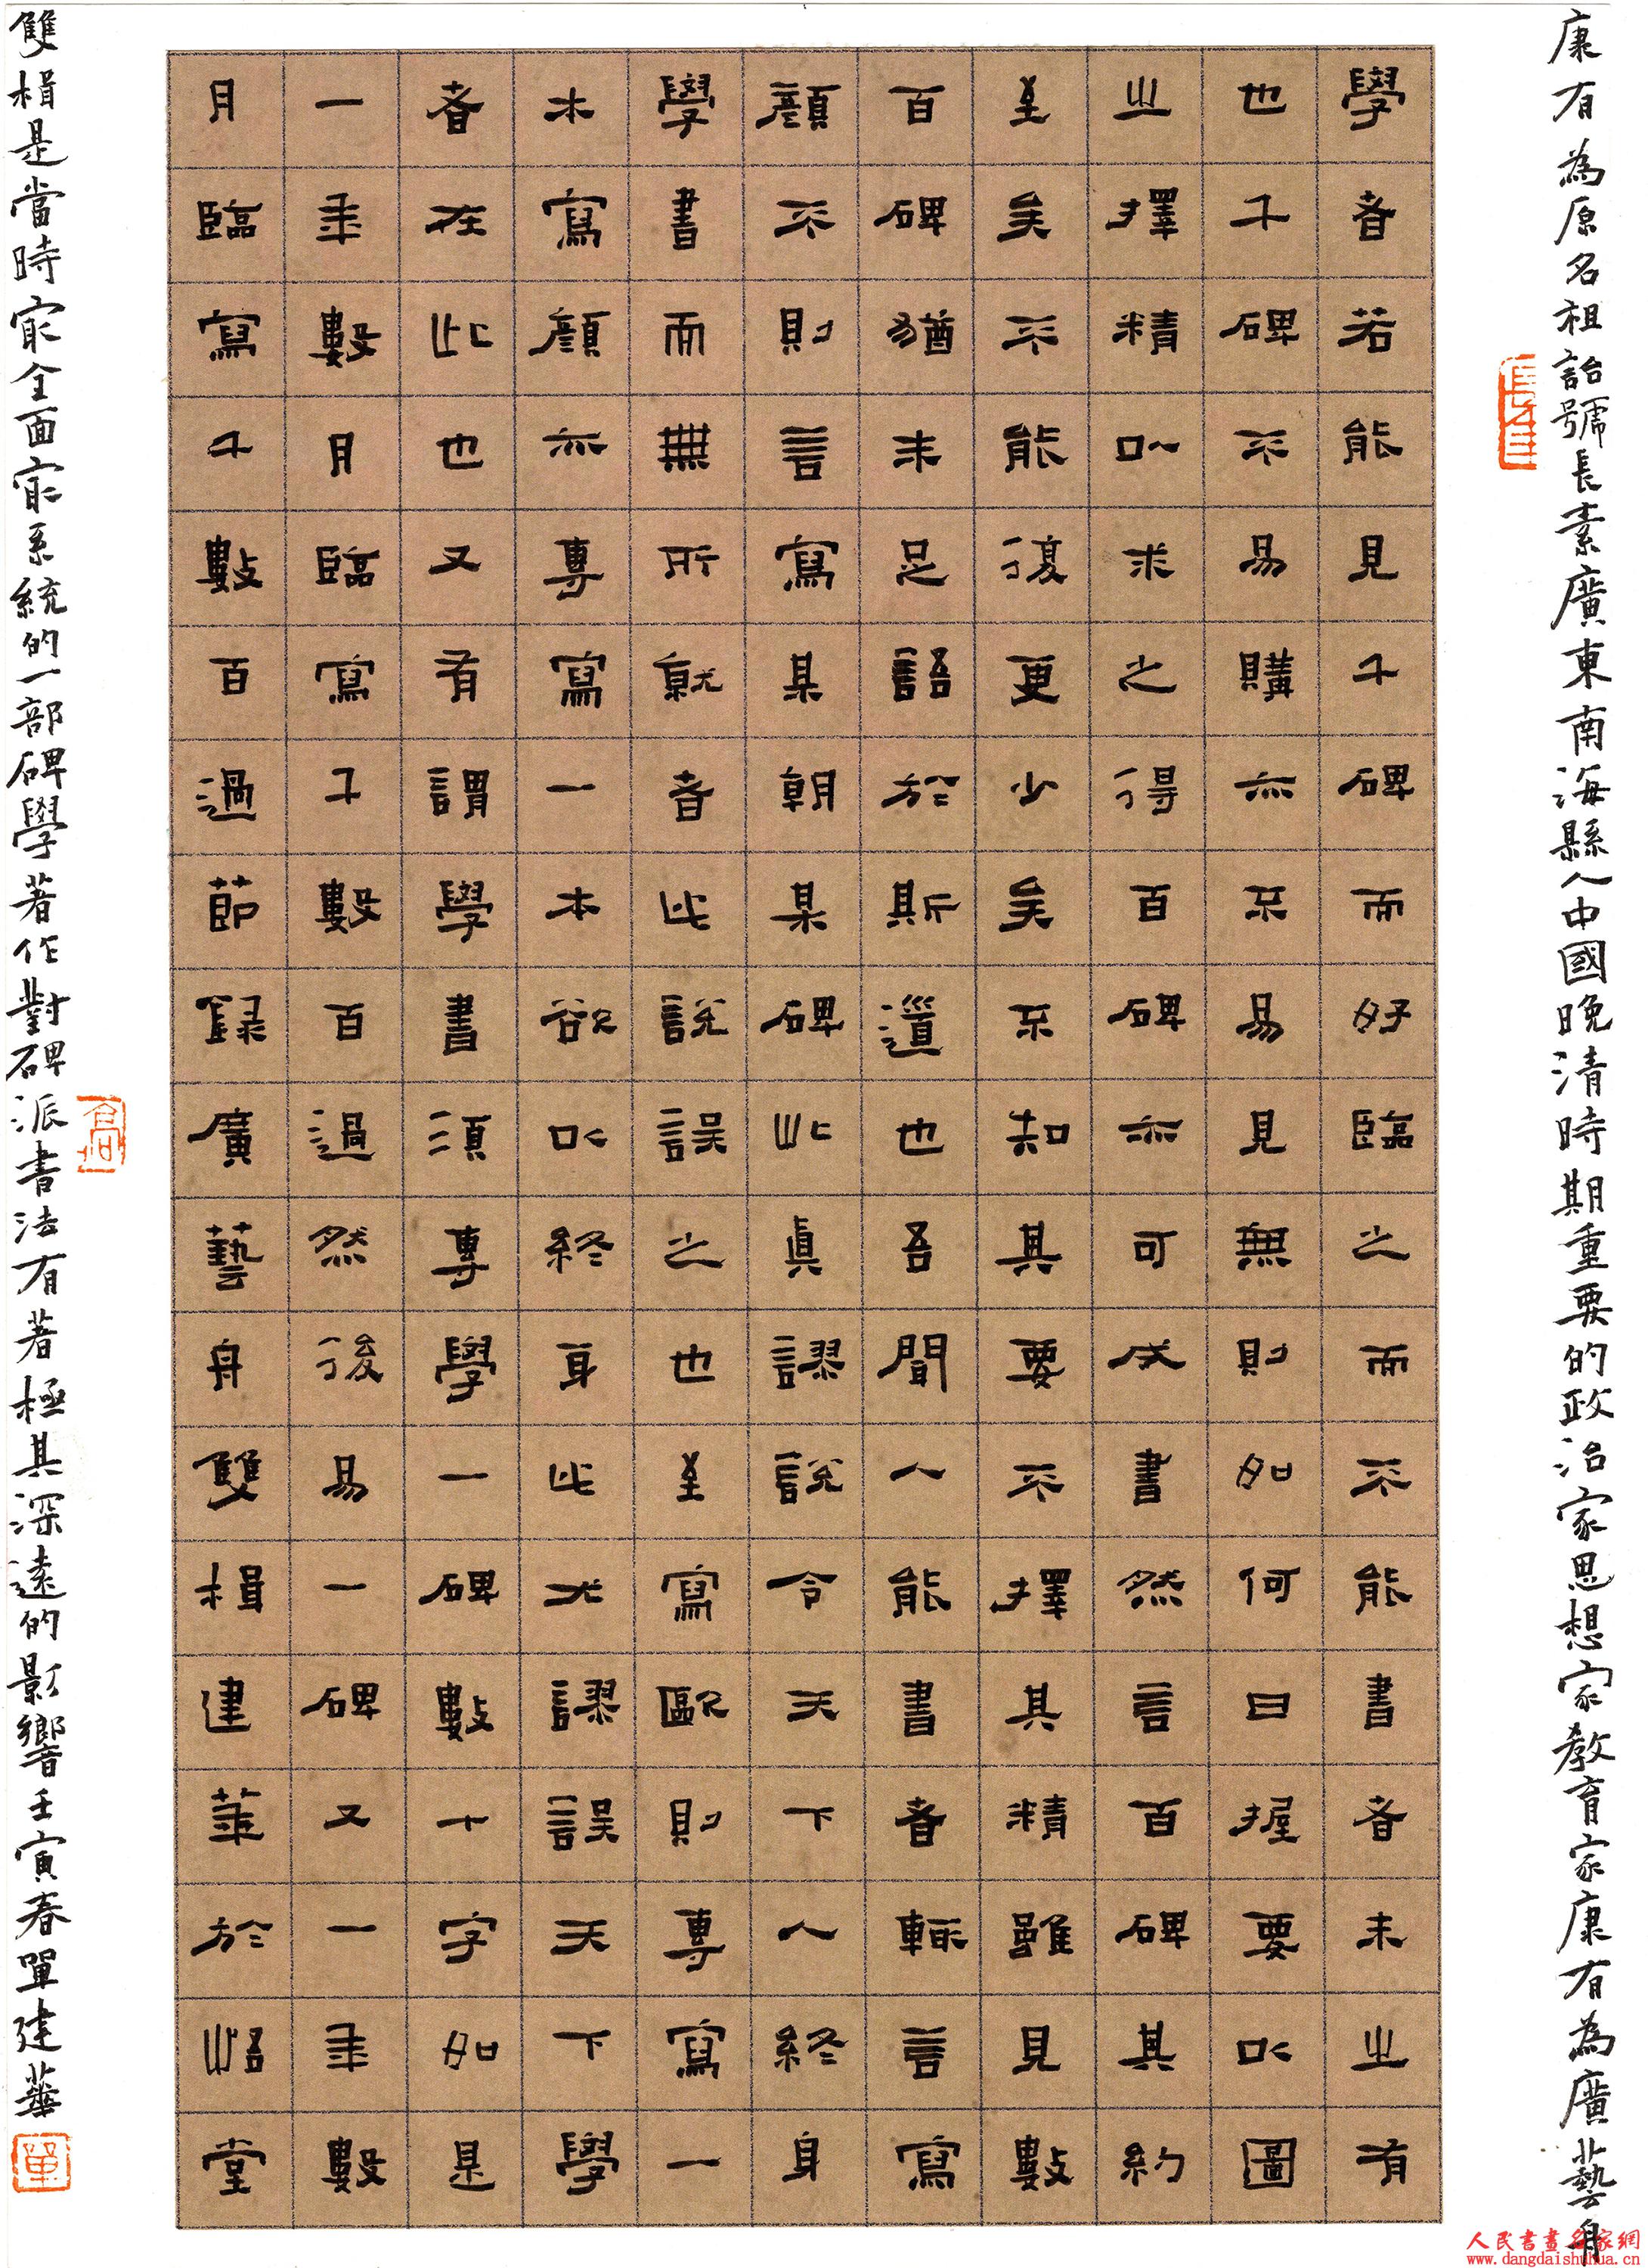 康有為原名祖詒號長素廣東南海縣人中國晚清時期重要的政治家思想家教育家康有為廣藝舟
學者若能見千碑而好臨之而不能書者未之有
也千碑不易購亦不易見無則如何曰握要以圖
之擇精以求之得百碑亦可成書然言百碑其約
至矣不能復更少矣不知其要不擇其精雖見數
百碑猶未足語於斯道也吾聞人能書者輒言寫
顏不則言寫某朝某碑此真謬說令天下人終身
學書而無所就者此說誤之也至寫歐則專寫一
本寫顏亦專寫一本欲以終身此尤謬誤天下學
者在此也又有謂學書須專學一碑數十字如是
一年數月臨寫千數百過然後易一碑又一年數
月臨寫千數百過節錄廣藝舟雙楫建華於峿堂
雙楫是當時最全面最系統的一部碑學著作對碑派書法有著極其深遠的影響壬寅春單建華
單
人民書畫名家網
www.dangdaishuhua.cn